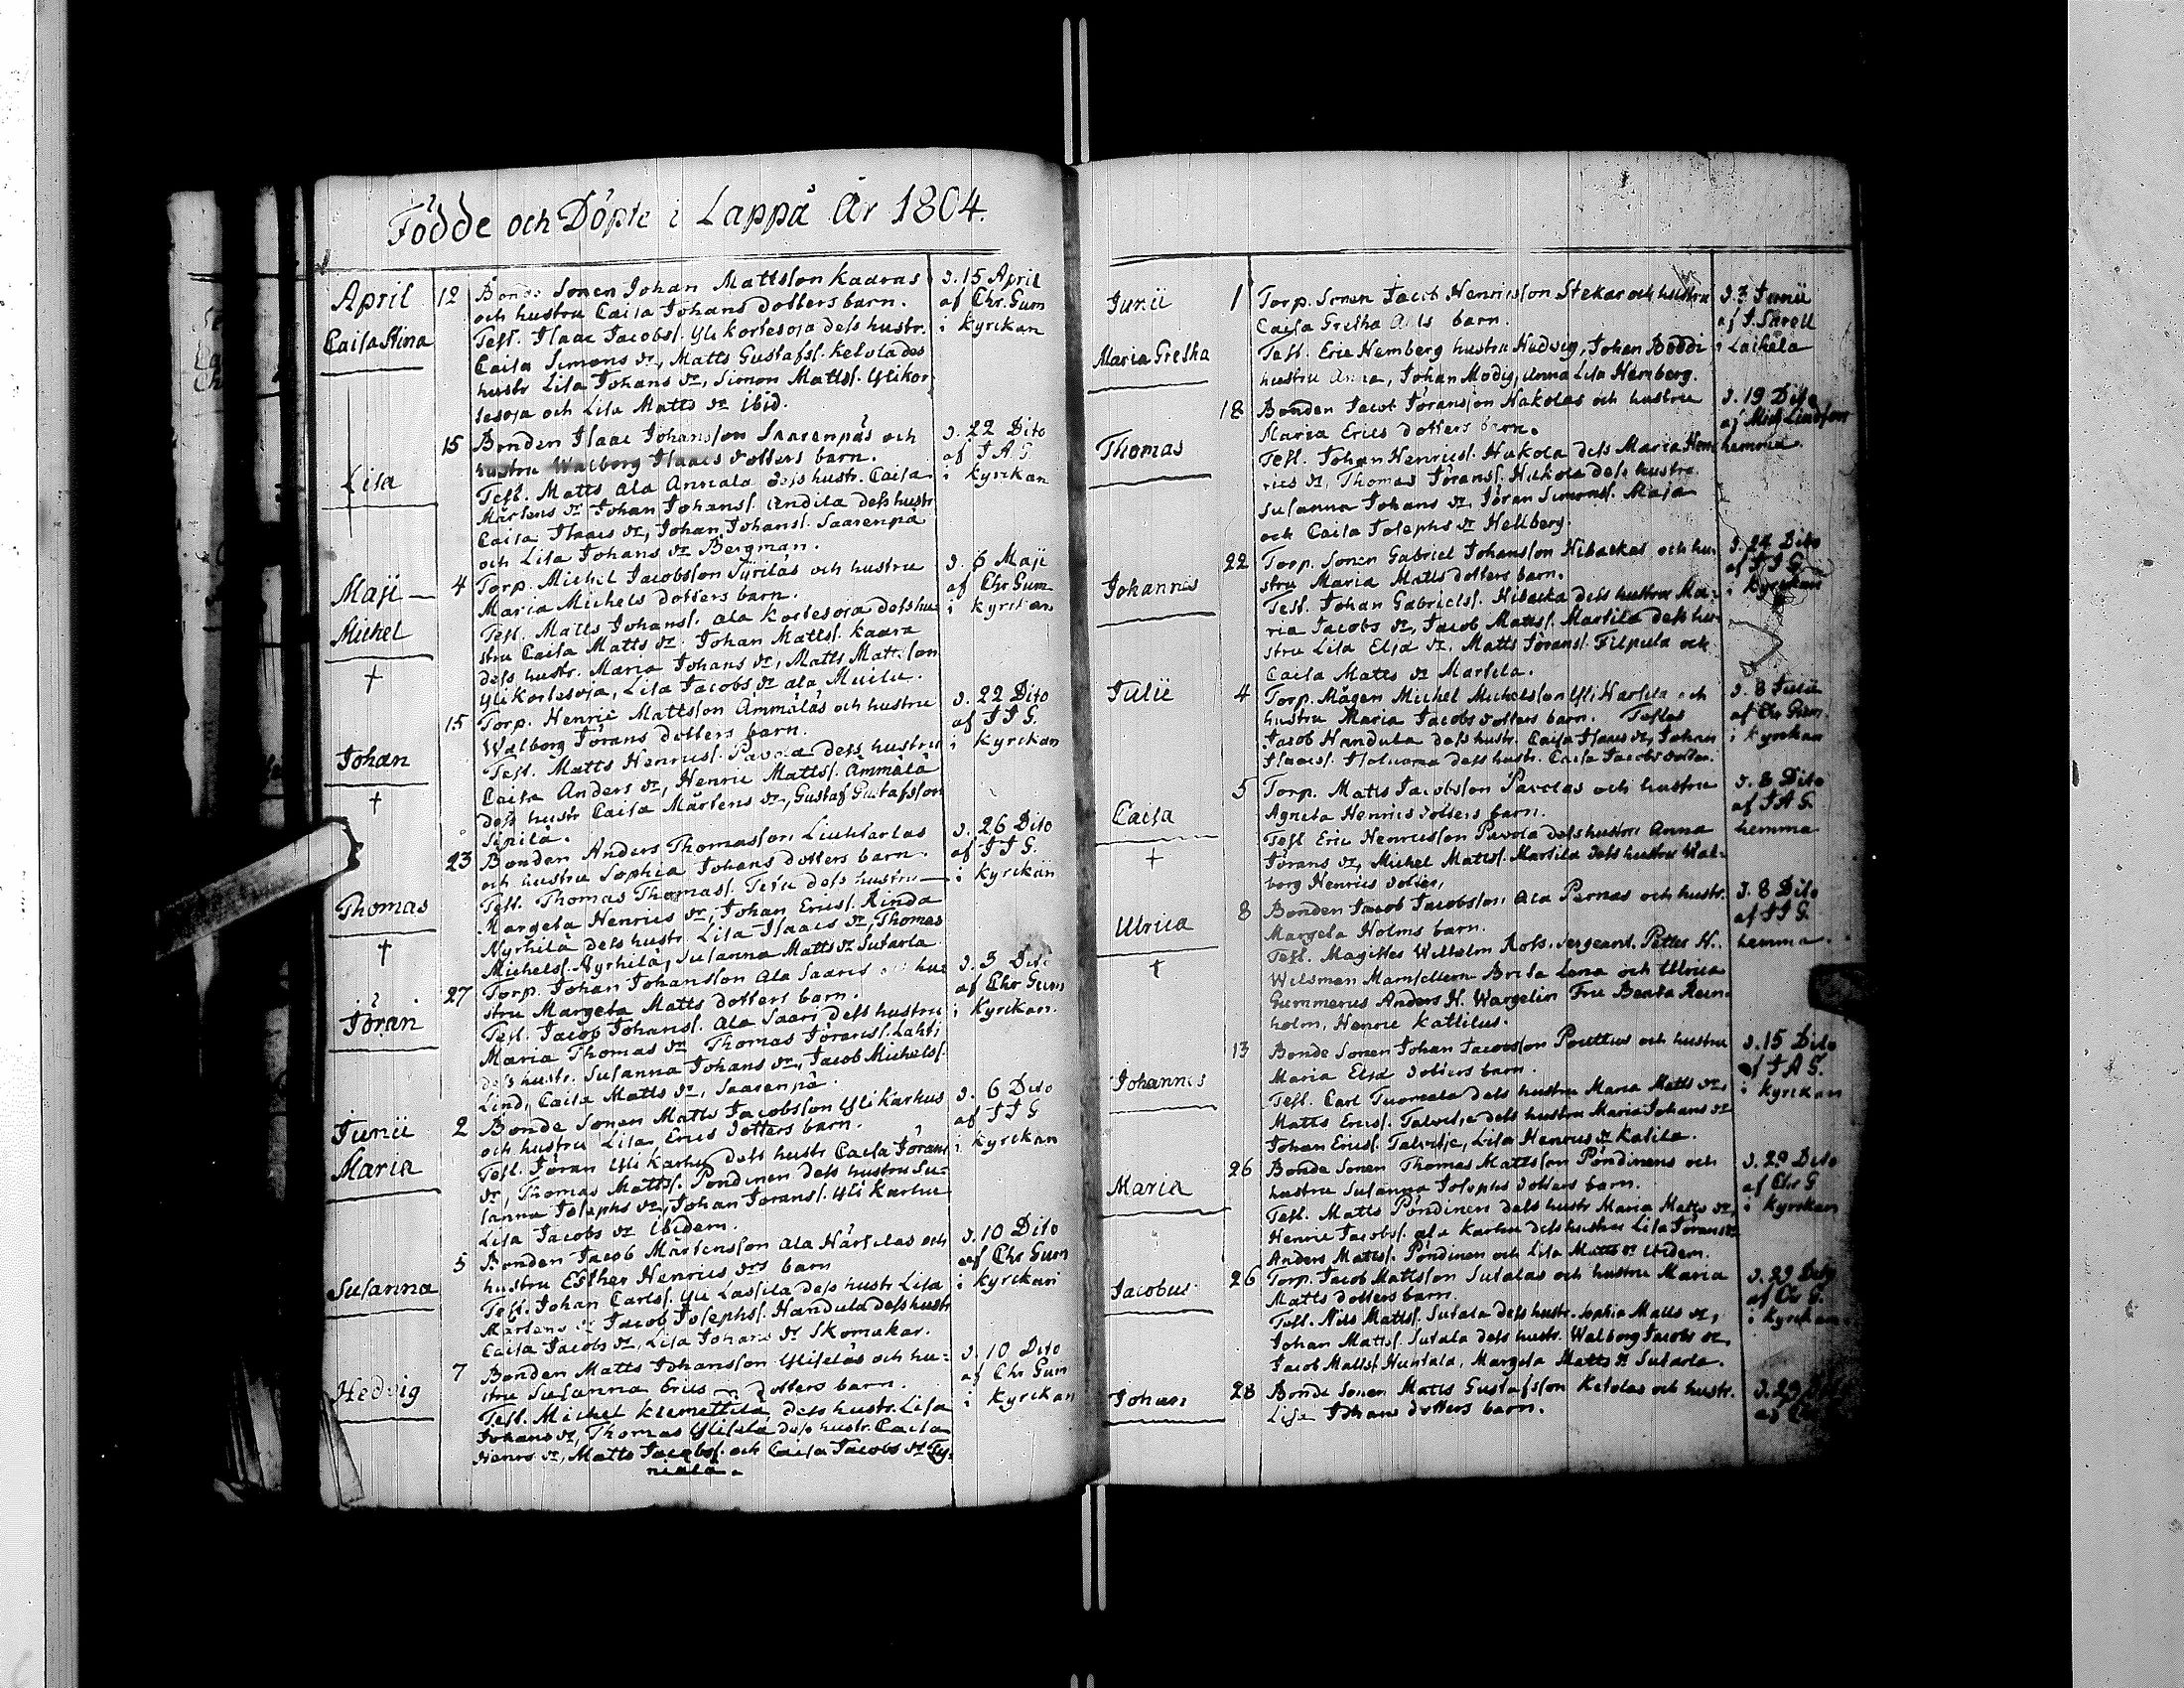 Födde och Döpte i Lappå År 1804.
April 12 Bonde Sonen Johan Mattsson Kaaras d. 15 April
och hustru Caisa Johans dotters barn. af Chr. Gum
Caisa Stina Test. Isaac Jacobss. Yli Kortesoja dess hustr. i Kyrckan
Caisa Simons dr, Matts Gustafss. Ketola des
hustr Lisa Johans dr, Simon Mattss. Ylikor
tesoja och Lisa Matts dr ibid.
15 Bonden Isaac Johansson Saarenpäs och d. 22 Dito
hustru Walborg Isaacs dotters barn. af J A G
Lisa Test. Matts Ala Annala dess hustr. Caisa i kyrckan
Mårtens dr Johan Johanss. Andila dess hustr
Caisa Isaacs dr, Johan Johanss. Saarenpä
och Lisa Johans dr Bergman.
Maji 4 Torp. Michel Jacobsson Syrilàs och hustru d. 6 Maji
Maria Michels dotters barn. af Chr Gum
Michel Test. Matts Johanss. Ala Kortesoja dess hu i kyrckan
stru Caisa Matts dr. Johan Mattss. Kaara
† dess hustr. Maria Johans dr, Matts Mattsson
Yli Kortesoja, Lisa Jacobs dr ala
15 Torp. Henric Mattsson Ämmäläs och hustru d. 22 Dito
Walborg Jörans dotters barn. af J J G.
Johan Test. Matts Henricss. Pavola dess hustru i kyrckan
Caisa Anders dr, Henric Mattss. Ämmälä
† dess hustr Caisa Mårtens dr, Gustaf Gustafsson
Sipilä.
23 Bonden Anders Thomasson Liuhtarlas d. 26 Dito
och hustru Sophia Johans dotters barn. af J J G.
Thomas Test. Thomas Thomass. dess hustru i kyrckan
Margeta Henrics dr, Johan Ericss. Rinda
† Nyrhilä dess hustr. Lisa Isaacs dr, Thomas
Michelss. Nyrhilä, Susanna Matts dr Sutarla
27 Torp. Johan Johansson Ala Saaris och hu d. 3
stru Margeta Matts dotters barn. af Chr Gum
Jöran Test. Jacob Johanss. Ala Saari dess hustru i Kyrckan.
Maria Thomas dr Thomas Jöranss. Lahti
dess hustr. Susanna Johans dr, Jacob Michelss.
Lind, Caisa Matts dr, Saarenpä.
Junii 2 Bonde Sonen Matts Jacobsson Yli Karhus d. 6 Dito
och hustru Lisa Erics dotters barn. af J J G
Maria Test. Jöran Yli Karhu dess hustr Caisa Jörans i kyrckan
dr, Thomas Mattss. Pöndinen dess hustru Su-
sanna Josephs dr, Johan Jöranss. Yli Karhu
Lisa Jacobs dr ibidem.
5 Bonden Jacob Mårtensson Ala Härsilas och d. 10 Dito
hustru Esther Henrics drs barn af Chr Gum
Susanna Test. Johan Carlss. Yli Lassila dess hustr Lisa i kyrckan
Mårtens dr Jacob Josephss. Handula dess hustr
Caisa Jacobs dr, Lisa Johans dr Skomakar.
7 Bonden Matts Johansson Yliselàs och hu- d. 10 Dito
stru Susanna Erics dotters barn. af Chr Gum
Hedvig Test. Michel Klemettilä dess hustr. Lisa i kyrckan
Johans dr, Thomas Ylisela dess hustr. Caisa
Henrs dr, Matts Jacobss. och Caisa Jacobs dr Ty-
niala.
Junii 1 Torp. Sonen Jacob Henricsson Stekar och hustru d. 3 Junii
Caisa Gretha barn. af J. Shrell
Maria Gretha Test. Eric Hemberg hustru Hedvig, Johan Boddi i Laihela
hustru Anna, Johan Modig, Anna Lisa Hemberg.
18 Bonden Jacob Jöransson Hakolas och hustru d. 19 Dito
Maria Erics dotters barn.
Thomas Test. Johan Henricss. Hakola dess Maria Hen hemma.
rics dr, Thomas Jöranss. Hakola dess hustru
Susanna Johans dr, Jöran Simonss. Maja
och Caisa Josephs dr Hellberg.
22 Torp. Sonen Gabriel Johansson Hibackas och hu- d. 24 Dito
stru Maria Matts dotters barn. af J J G.
Johannes Test. Johan Gabrielss. Hibacka dess hustru Ma- i kyrckan
ria Jacobs dr, Jacob Mattss. Martila dess hu-
stru Lisa Elsa dr. Matts Jöranss. Filpula och
Caisa Matts dr Martila.
Julii 4 Torp. Mågen Michel Michelsson Yli Harsila och d. 8 Julii
hustru Maria Jacobs dotters barn. Testes af Chr Gum.
Jacob Handula dess hustr. Caisa Isaacs dr, Johan i kyrckan
Isaacss. dess hustr. Caisa Jacobs
5 Torp. Matts Jacobsson Pavolas och hustru d. 8 Dito
Caisa Agneta Henrics dotters barn. af J A G.
Test Eric Henricsson Pavola dess hustru Anna hemma
† Jörans dr, Michel Mattss. Martila dess hustru Wal-
borg Henrics dotter,
8 Bonden Jacob Jacobsson Ala Pernas och hustr. d. 8 Dito
Ulrica Margeta Holms barn. af J J G.
Test. Wilhelm Ross. Sergeant. Petter H. hemma.
† Wilsman Mamsellerne Brita Lena och Ulrica
Gummerus Anders H. Wargelin Fru Beata Rein-
holm, Henric Kattilus.
13 Bonde Sonen Johan Jacobsson Pouttus och hustru d. 15 Dito
Maria Elsa dotters barn. af J A G.
Johannes Test. Carl Tuomela dess hustru Maria Matts dr, i kyrckan
Matts Ericss. Talvitje dess hustru Maria Johans dr
Johan Ericss. Talvitje, Lisa Henrics dr Katila.
26 Bonde Sonen Thomas Mattsson Pöndinens och d. 29 Dito
Maria hustru Susanna Josephs dotters barn. af Chr G
Test. Matts Pöndinen dess hustr Maria Matts dr, i kyrckan
Henric Jacobss. ala Karhu dess hustru Lisa Jörans dr
Anders Mattss. Pöndinen och Lisa Matts dr ibidem.
Jacobus 26 Torp. Jacob Mattsson Sutalas och hustru Maria d. 29 Dito
Matts dotters barn. af Chr G.
Test. Nils Mattss. Sutala dess hustr. Sophia Matts dr, i kyrckan
Johan Mattss. Sutala dess hustr. Walborg Jacobs dr
Jacob Mattss. Huntala, Margeta Matts dr Sutarla.
Johan 28 Bonde Sonen Matts Gustafsson Ketolas och hustr. d. 29
Lisa Johans dotters barn.